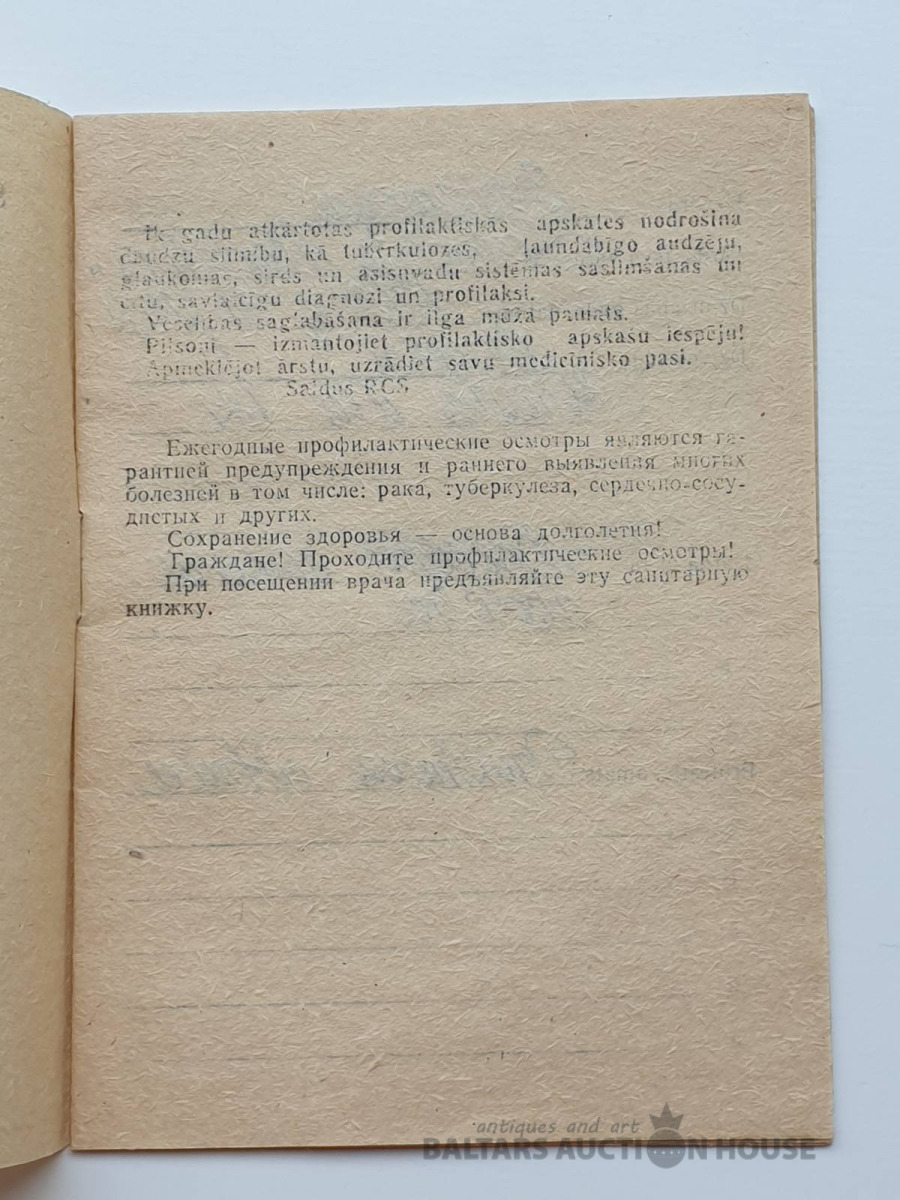 Ik gadu atkārtotas profilaktiskās apskates nodrošina
daudzu slimību, kā tuberkulozes, ļaundabīgo audzēju,
glaukomas, sirds un asisuvadu sistēmas saslimšanas un
citu, savlaicīgu diagnozi un profilaksi.
Veselības saglabāšana ir ilga mūža pamats.
Pilsoņi — izmantojiet profilaktisko apskašu iespēju!
Apmeklējot ārstu, uzrādiet savu medicīnisko pasi.
Saldus RCS
Ежегодные профилактические осмотры являются га-
рантией предупреждения и раннего выявления многих
болезней в том числе: рака, туберкулеза, сердечно-сосу-
дистых и других.
Сохранение здоровья — основа долголетия!
Граждане! Проходите профилактические осмотры!
При посещении врача предъявляйте эту санитарную
книжку.
antiques and art
BALTARS AUCTION HOUSE